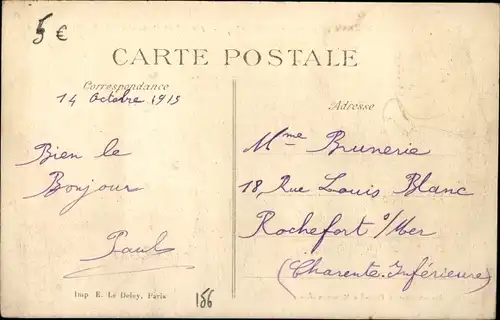 5 €
CARTE POSTALE
Correspondance
14 Octobre 1915
Adresse
Bien le
Bonjour
Paul
Mme Brunerie
18, Rue Louis Blanc
Rochefort s/Mer
(Charente-Inférieure)
Imp E. Le Deley, Paris
186